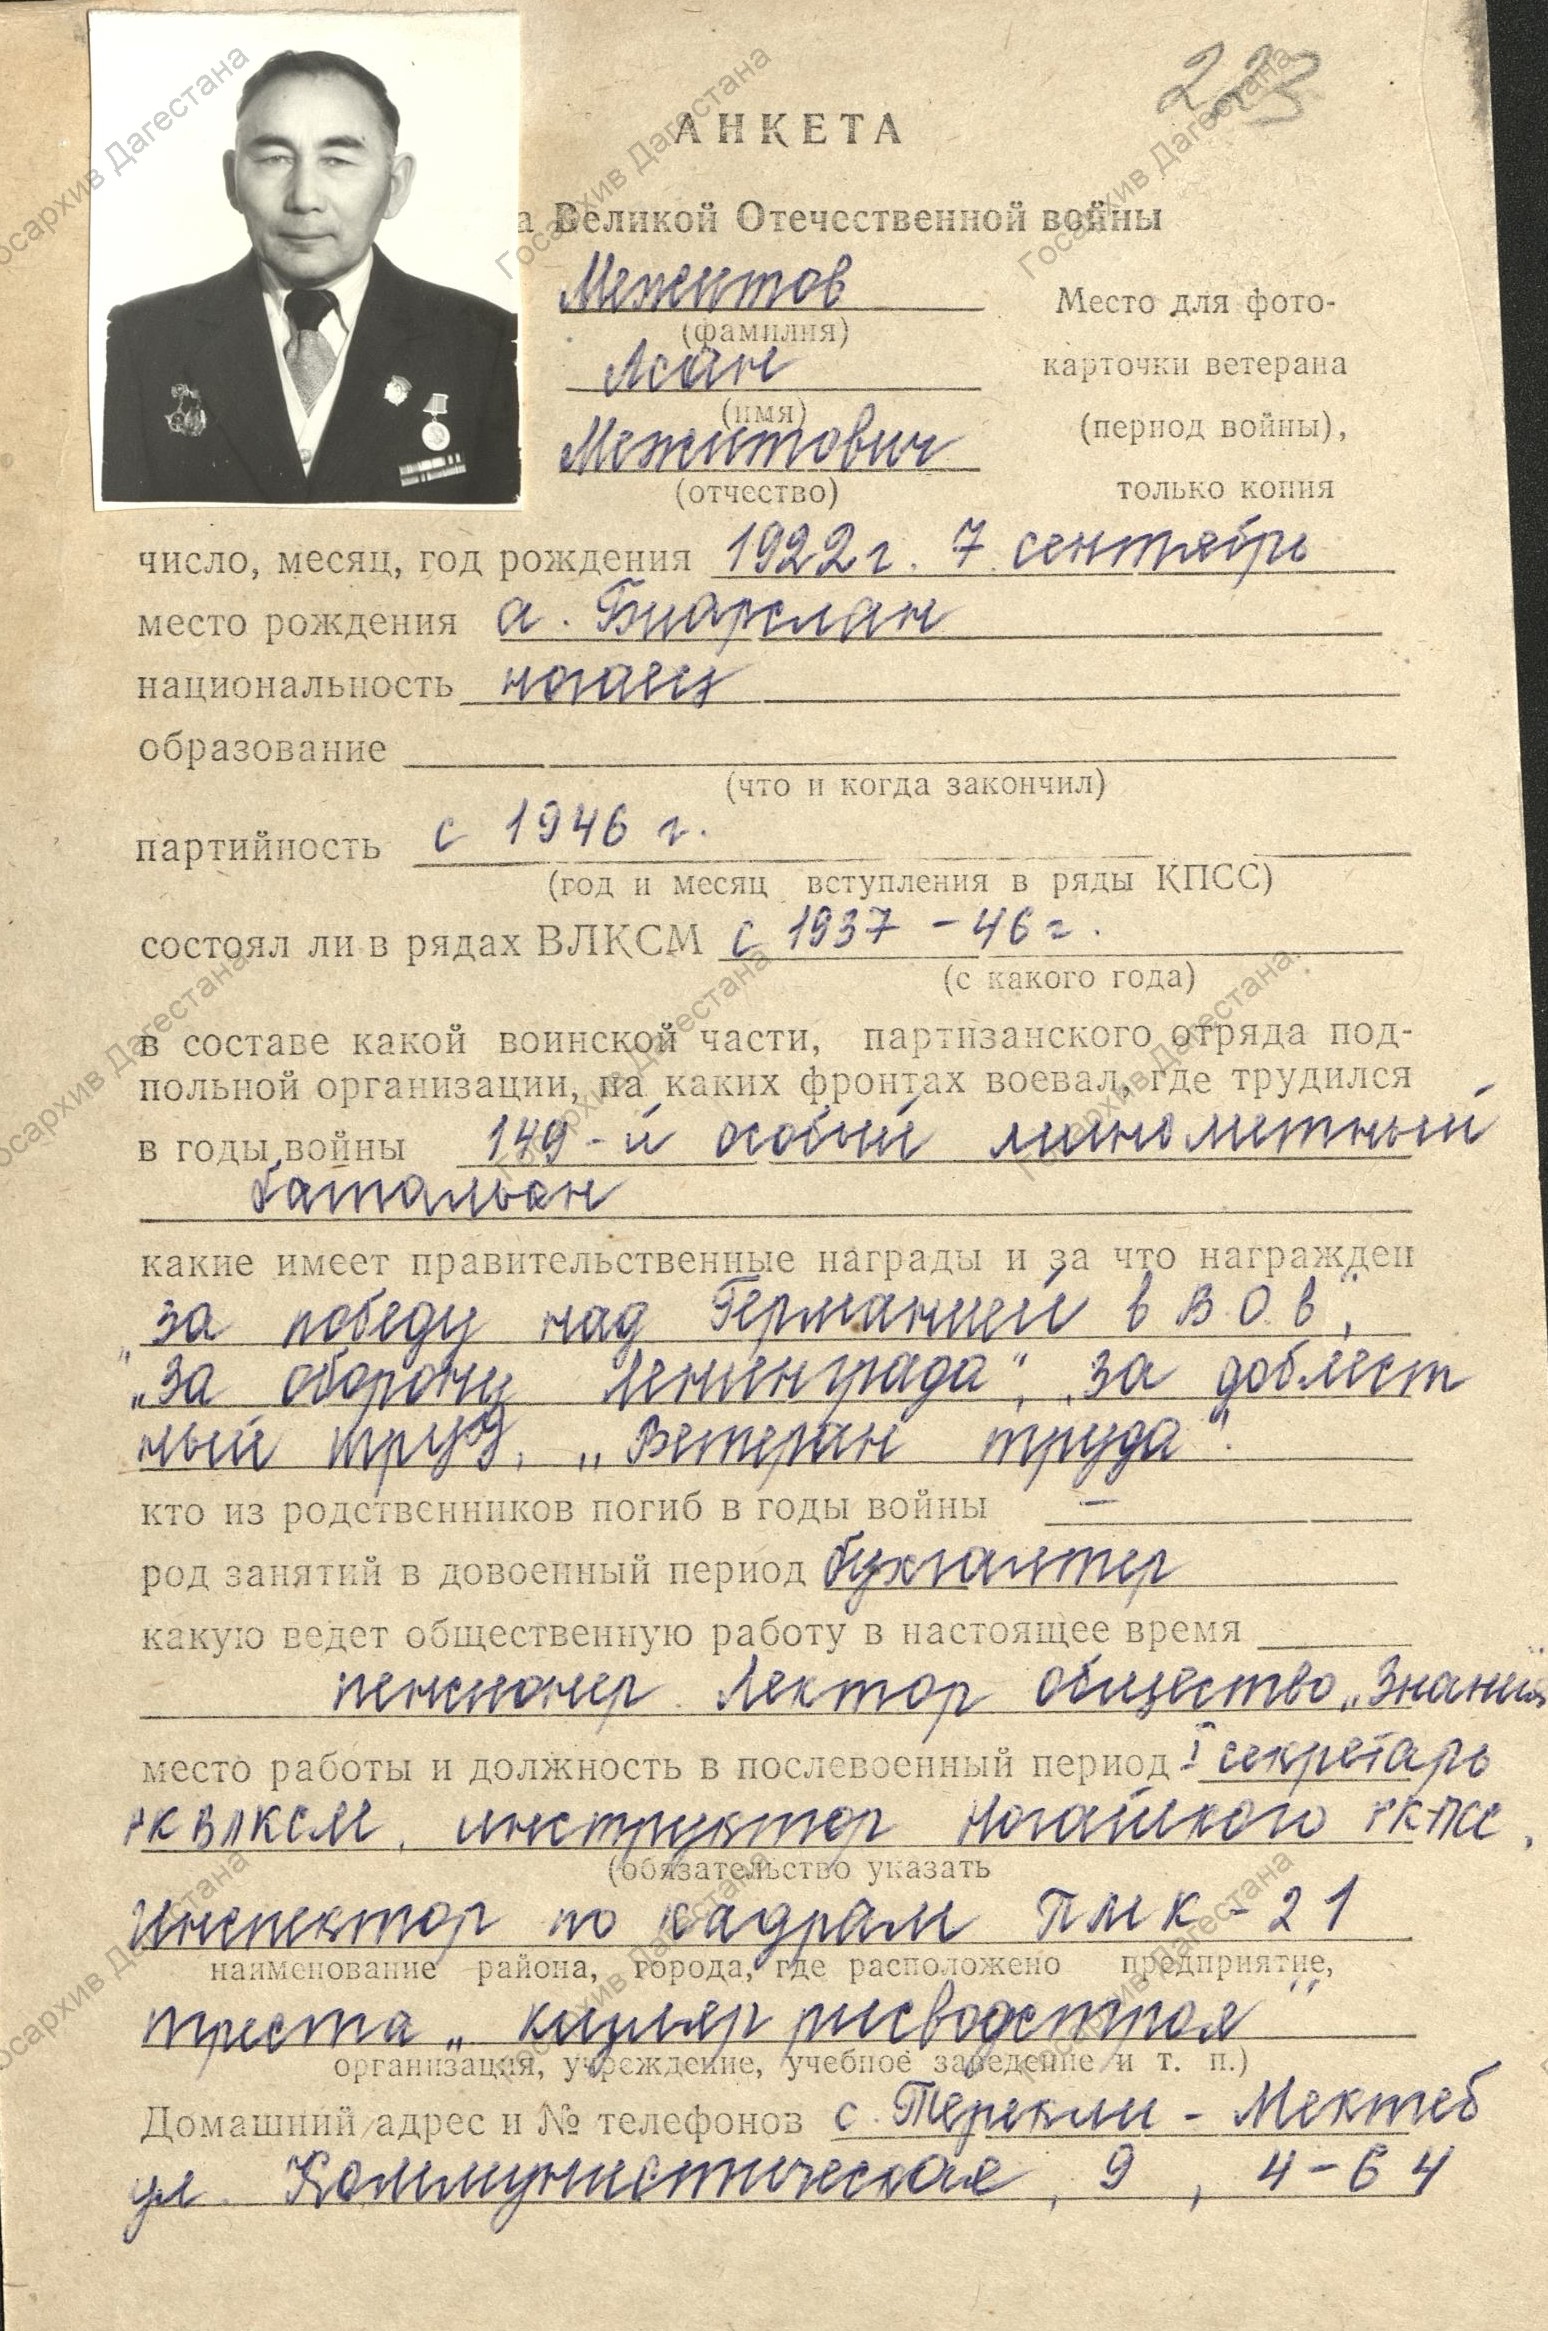 223
АНКЕТА
а Великой Отечественной войны
Межитов
Место для фото-
(фамилия)
Асан
карточки ветерана
(имя)
(период войны),
Межитович
(отчество)
только копия
число, месяц, год рождения 1922 г. 7 сентябрь
место рождения а. Биарслан
национальность ногаец
образование
(что и когда закончил)
партийность с 1946 г.
(год и месяц вступления в ряды КПСС)
состоял ли в рядах ВЛКСМ с 1937 - 46 г.
(с какого года)
в составе какой воинской части, партизанского отряда под-
польной организации, на каких фронтах воевал, где трудился
в годы войны 149-й особый минометный
батальон
какие имеет правительственные награды и за что награжден
за победу над Германией в В О в",
"„За оборону Ленинграда", „за доблест
ный труд, „Ветеран труда".
кто из родственников погиб в годы войны —
род занятий в довоенный период бухгалтер
какую ведет общественную работу в настоящее время
пенсионер. Лектор общество „Знание"
место работы и должность в послевоенный период I секретарь
РК ВЛКСМ, инструктор Ногайского РК ПСС,
(обязательство указать
Инспектор по кадрам ПМК-21
наименование района, города, где расположено предприятие,
треста „Кизляррисводстроя"
организация, учреждение, учебное заведение и т. п.)
Домашний адрес и № телефонов с. Терекли-Мектеб
ул. Коммунистическая, 9, 4-64
Госархив Дагестана